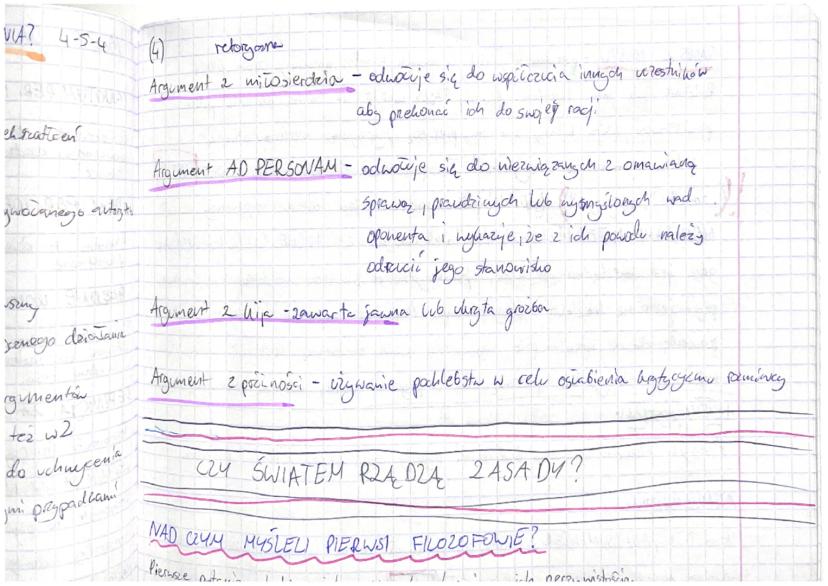 VIA? 4-5-4
ekształceń
ywołanego autoryt
sżny
cznego działania
rgumentów
też w2
do uchwycenia
ymi przypadkami
(4) retoryczne
Argument z miłosierdzia – odwołuje się do współczucia innych uczestników
aby przekonać ich do swojej racji
Argument AD PERSONAM – odwołuje się do niezwiązanych z omawianą
sprawą, prawdziwych lub wymyślonych wad
oponenta i wykazuje, że z ich powodu należy
odrzucić jego stanowisko
Argument z kija – zawarta jawna lub ukryta groźba
Argument z próżności – używanie pochlebstw w celu osłabienia krytycyzmu rozmówcy
CZY ŚWIATEM RZĄDZĄ ZASADY?
NAD CZYM MYŚLELI PIERWSI FILOZOFOWIE?
Pierwsze